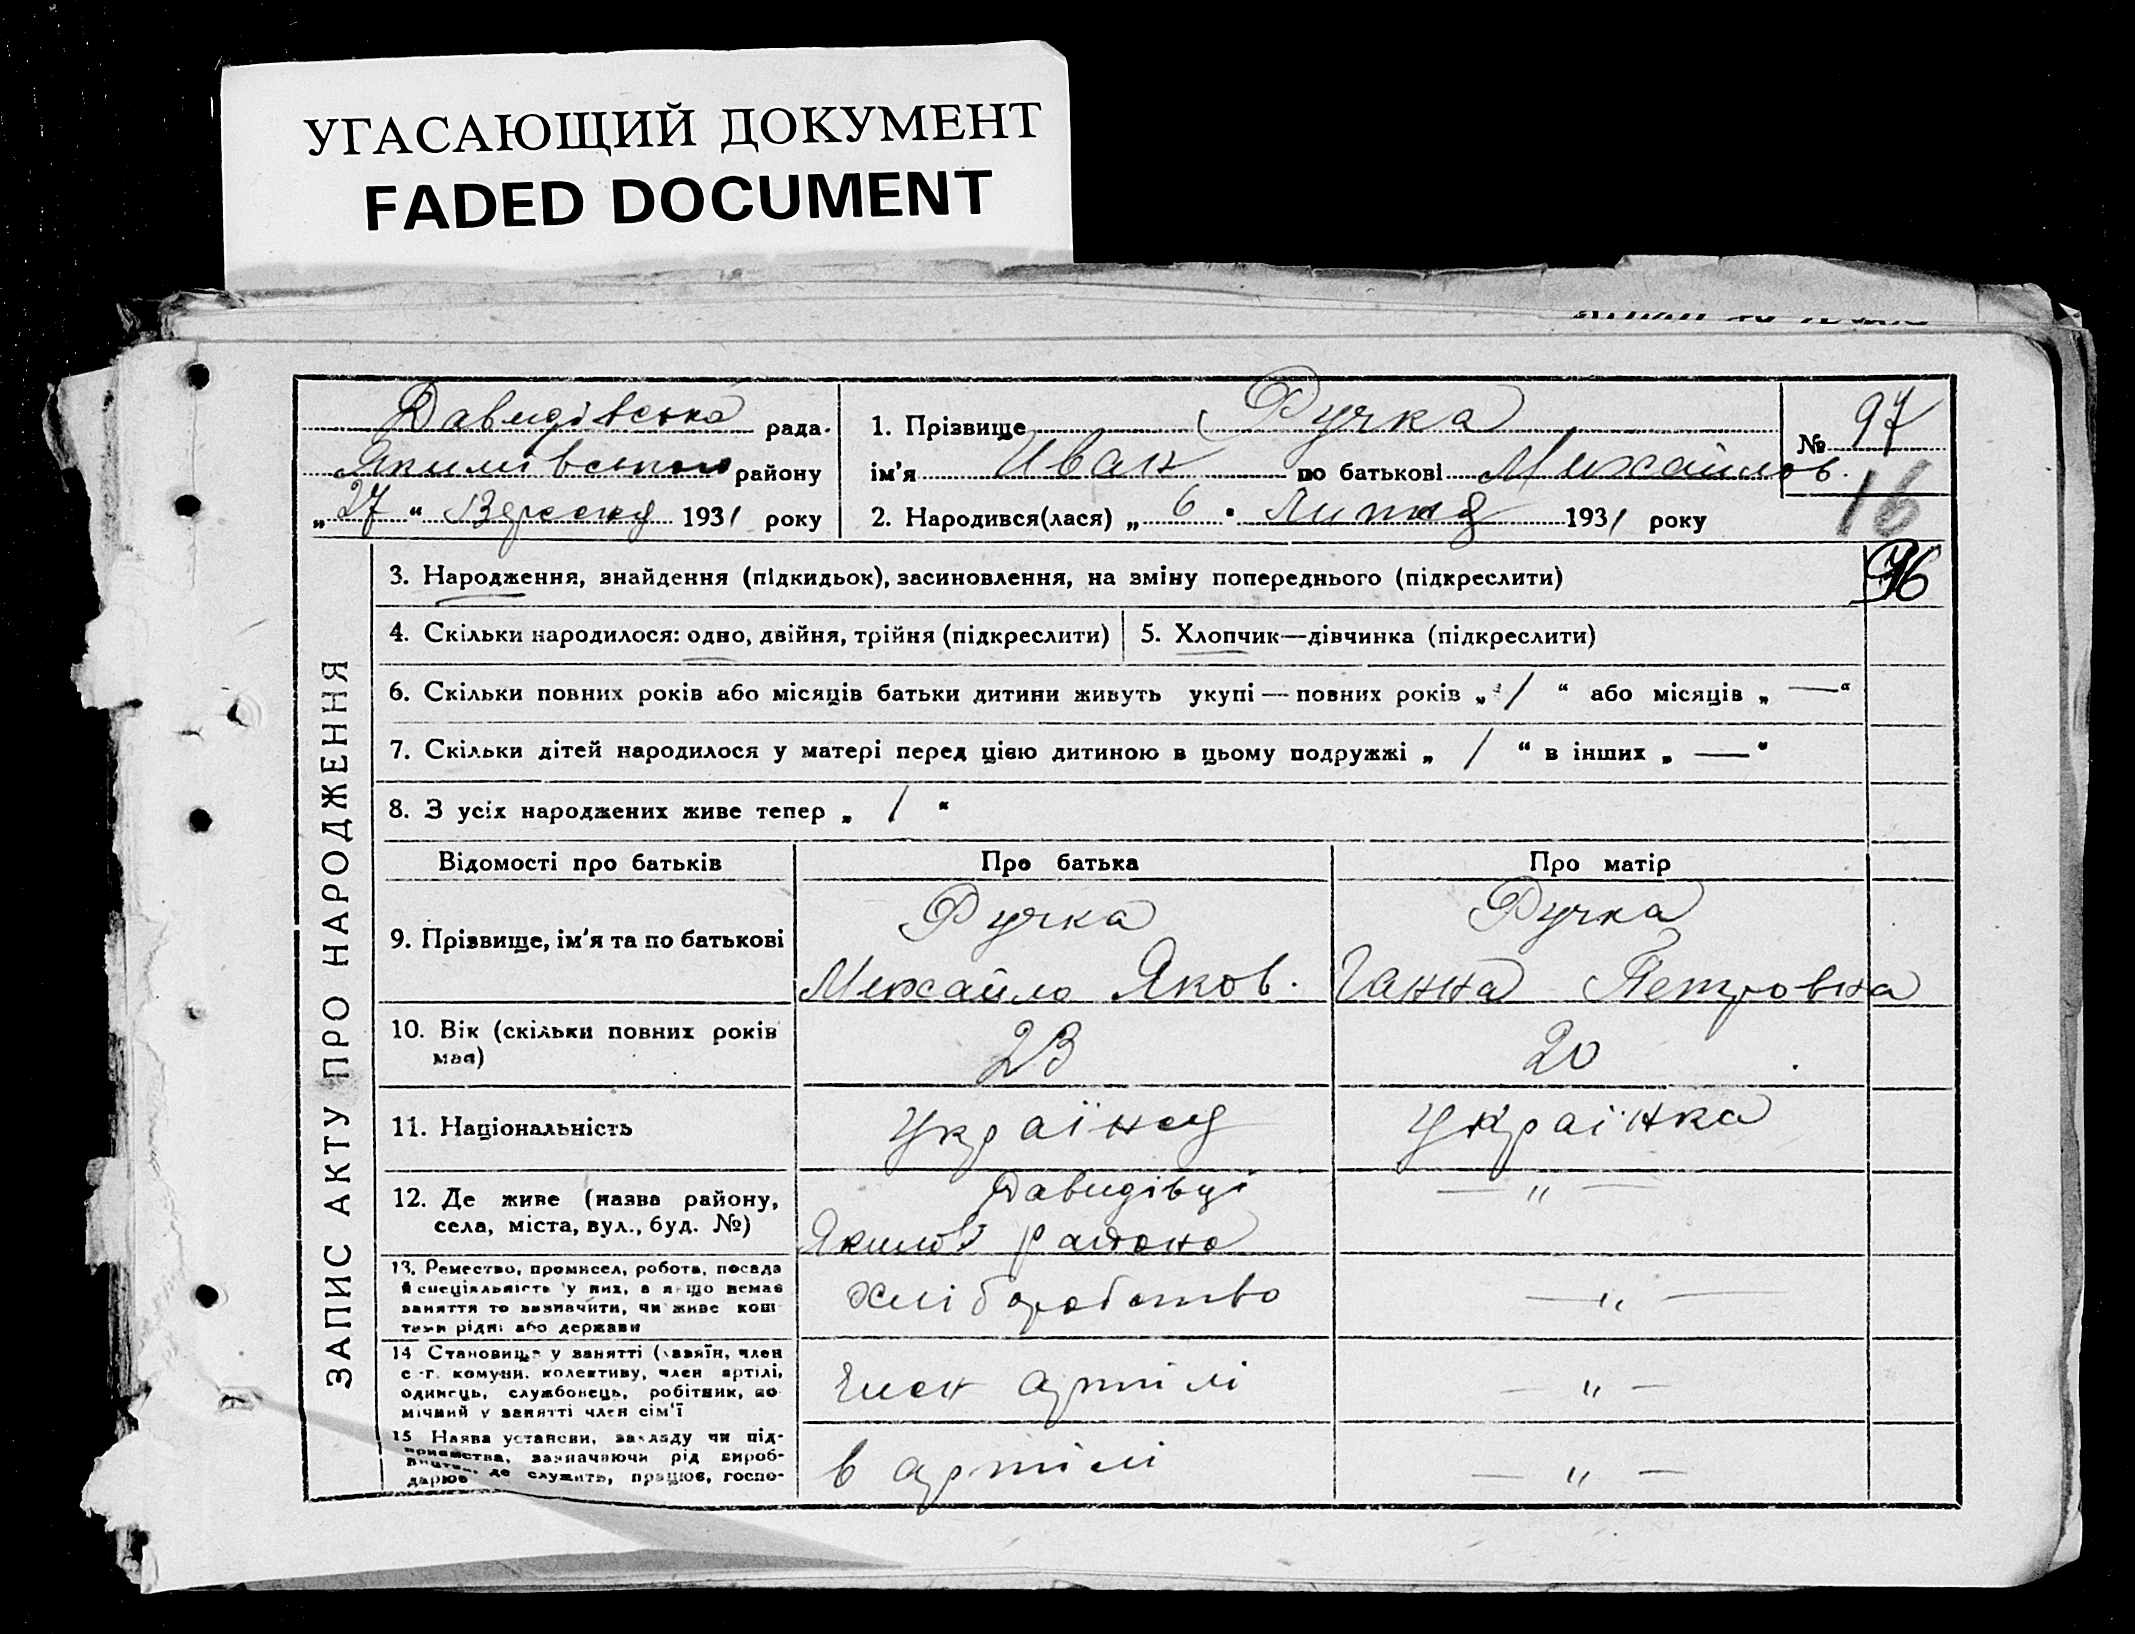 УГАСАЮЩИЙ ДОКУМЕНТ
FADED DOCUMENT
Давидівська рада
Якимівського району
„27“ Вересня 1931 року
1. Прізвище Ручка
ім'я Иван по батькові Михайлов.
2. Народився(лася) „6" Липня 1931 року
№ 97
16
96
ЗАПИС АКТУ ПРО НАРОДЖЕННЯ
3. Народження, знайдення (підкидьок), засиновлення, на зміну попереднього (підкреслити)
4. Скільки народилося: одно, двійня, трійня (підкреслити)
5. Хлопчик—дівчинка (підкреслити)
6. Скільки повних років або місяців батьки дитини живуть укупі — повних років „ 1 “ або місяців „ — “
7. Скільки дітей народилося у матері перед цією дитиною в цьому подружжі „ 1 “ в інших „ — “
8. З усіх народжених живе тепер „ 1 “
Відомості про батьків Про батька Про матір
9. Прізвище, ім'я та по батькові
Ручка
Михайло Яков.
Ручка
Ганна Петровна
10. Вік (скільки повних років
має)
23
20
11. Національність
Українец
Українка
12. Де живе (назва району,
села, міста, вул., буд. №)
Давидівці
Якимов району
— " —
13. Ремество, промисел, робота, посада
й спеціяльність у них, а якщо немає
заняття то визначити, чи живе кош
тами рідні або держави
Хліборобство
— " —
14 Становище у занятті (хазяїн, член
с.-г. комуни, колективу, член артілі,
одинець, службовець, робітник, до
мічний у занятті член сім'ї
Член артілі
— " —
15 Назва установи, закладу чи під-
приємства, зазначаючи рід вироб-
ництва, де служить, працює, госпо-
дарює
в артілі
— " —